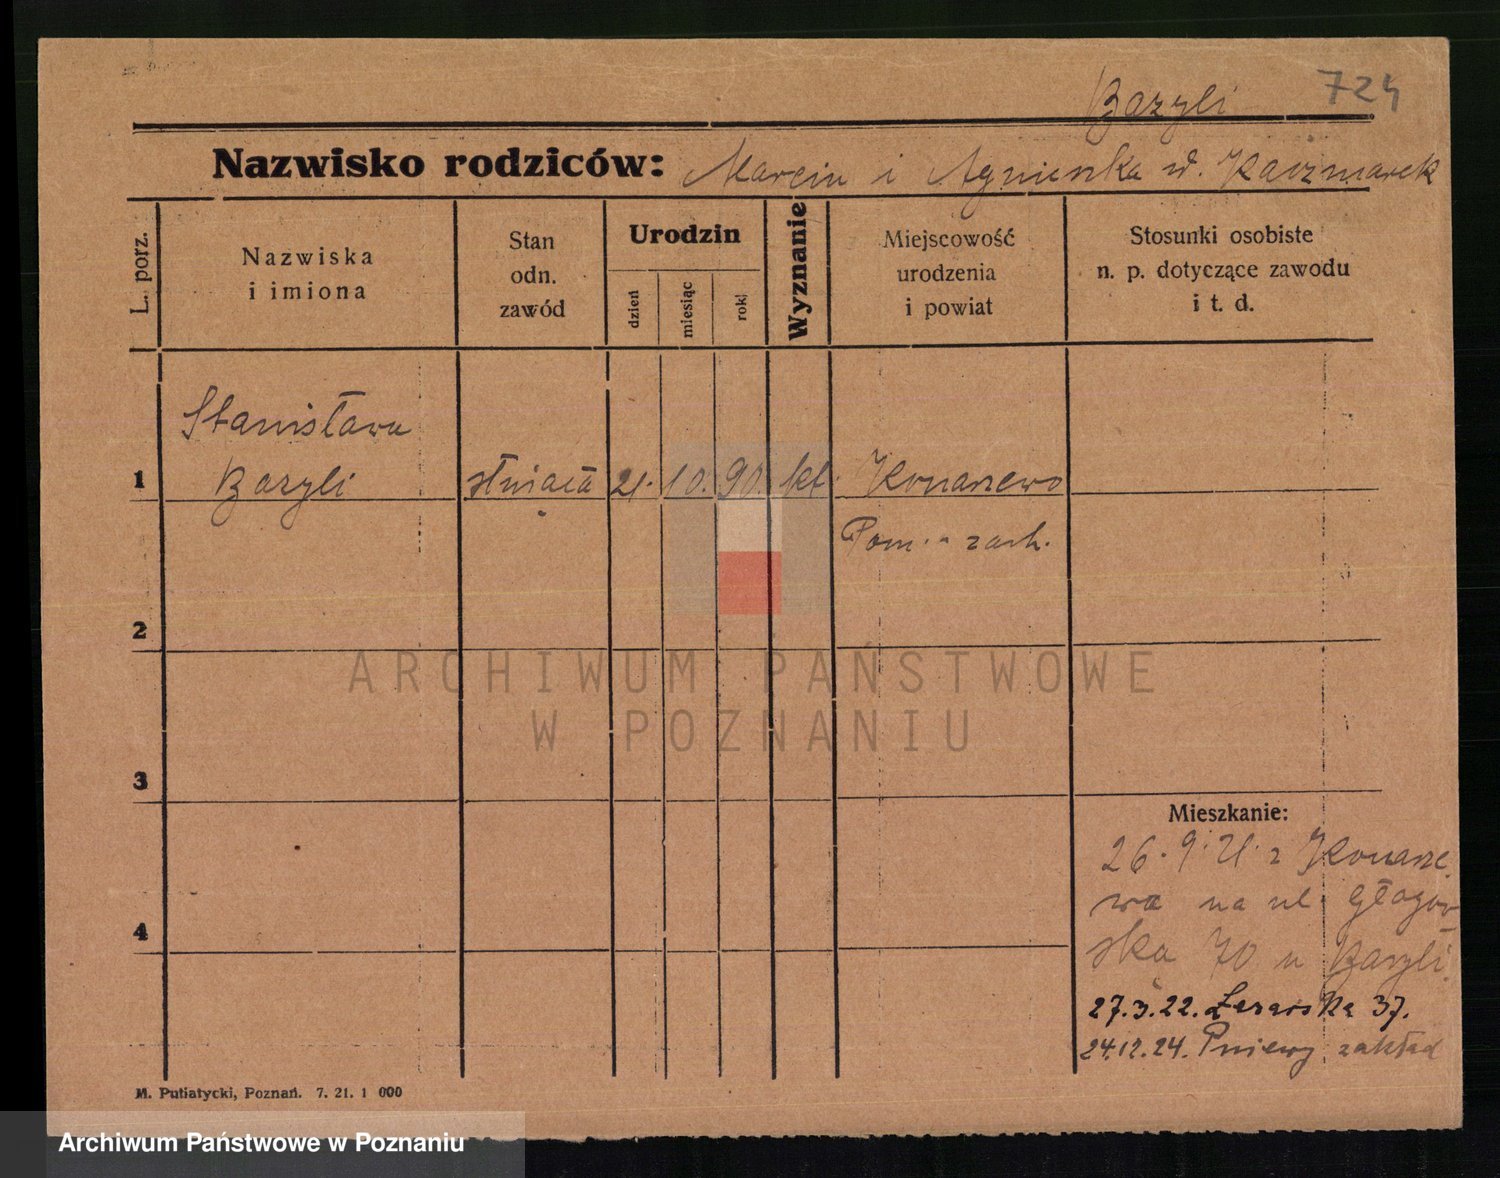 Bazyli 724
Nazwisko rodziców: Marcin i Agnieszka d. Kaczmarek
L. porz.
Nazwiska
i imiona
Stan
odn.
zawód
Urodzin
dzień
miesiąc
rok
Wyznanie
Miejscowość
urodzenia
i powiat
Stosunki osobiste
n. p. dotyczące zawodu
i t. d.
Stanisława
1 Bazyli 21. 10. 90. kt. Konarzewo
Pozn. zach.
2
ARCHIWUM PAŃSTWOWE
W POZNANIU
3
Mieszkanie:
26. 9. 21. z Konarze
wa na ul. Głogow
ska 70 u Bazyli
4
27.3.22. 37.
24.12.24. Pniewy zakład
M. Putiatycki, Poznań. 7. 21. 1 000
Archiwum Państwowe w Poznaniu